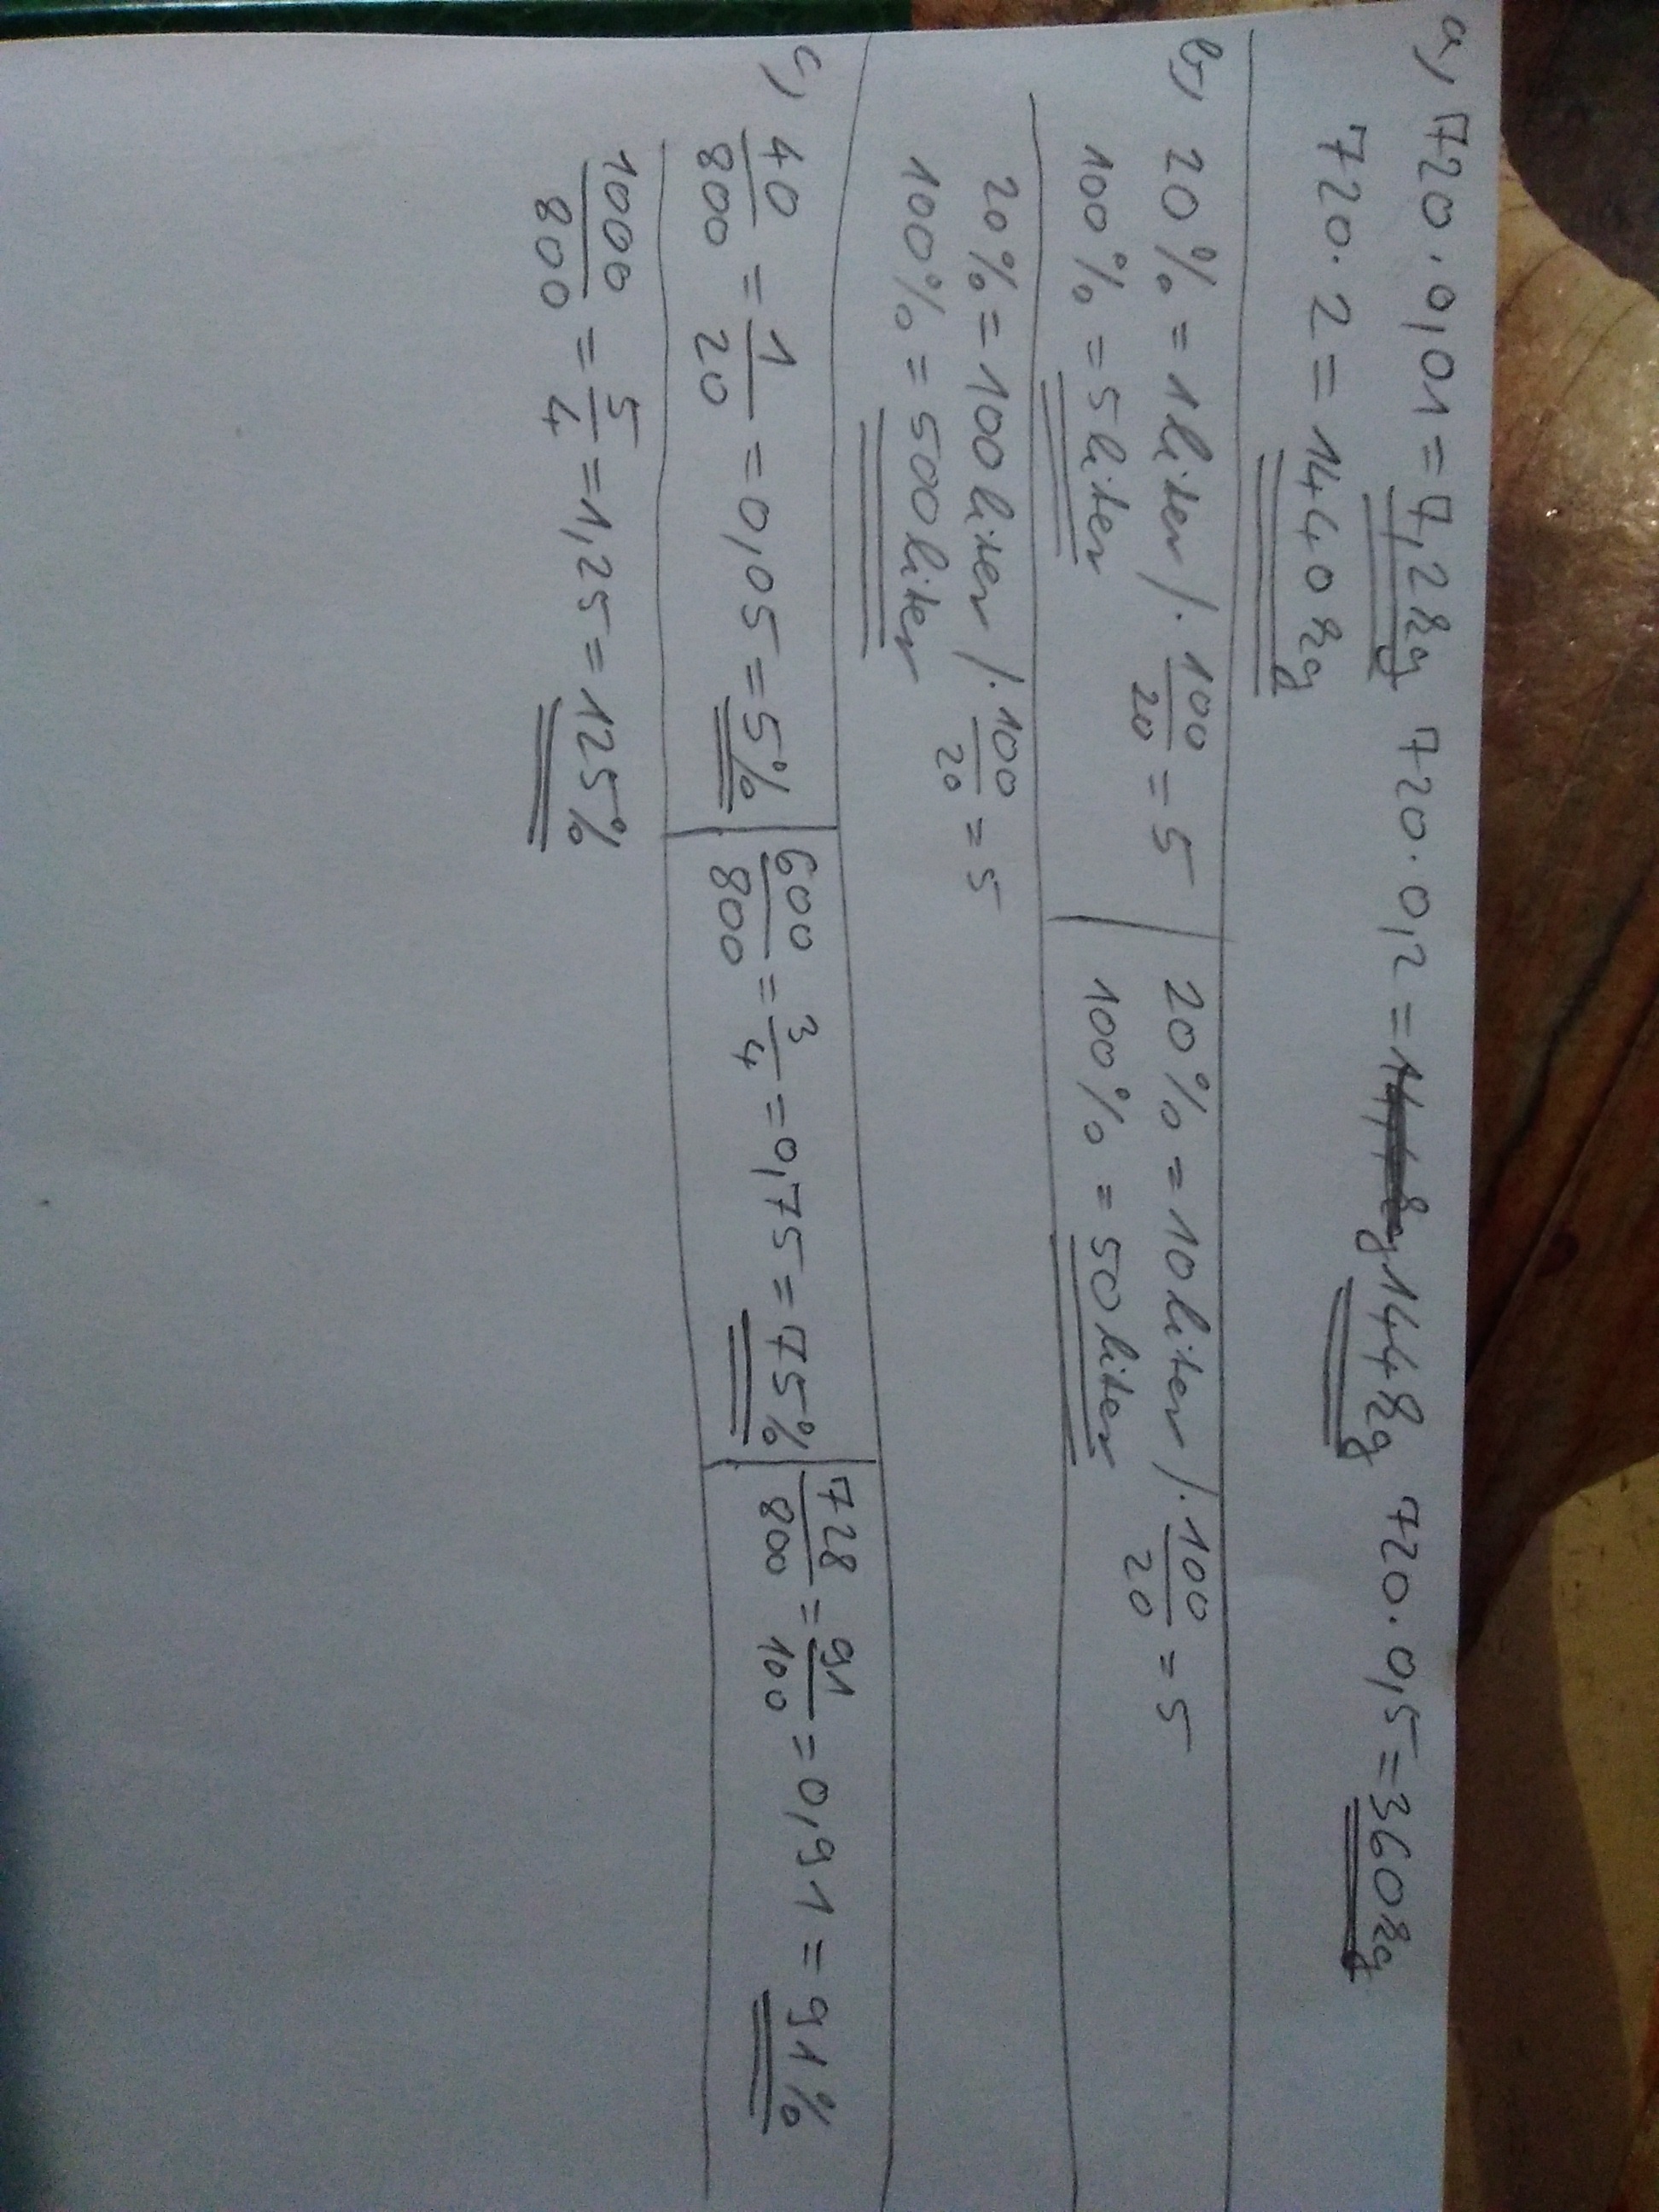 a, 720 · 0,01 = 7,2kg 720 · 0,2 = 144kg 720 · 0,5 = 360kg
720 · 2 = 1440kg
b, 20% = 1liter / · 100/20 = 5 | 20% = 10liter / · 100/20 = 5
100% = 5liter 100% = 50liter
20% = 100liter / · 100/20 = 5
100% = 500liter
c, 40/800 = 1/20 = 0,05 = 5% | 600/800 = 3/4 = 0,75 = 75% | 728/800 = 91/100 = 0,91 = 91%
1000/800 = 5/4 = 1,25 = 125%